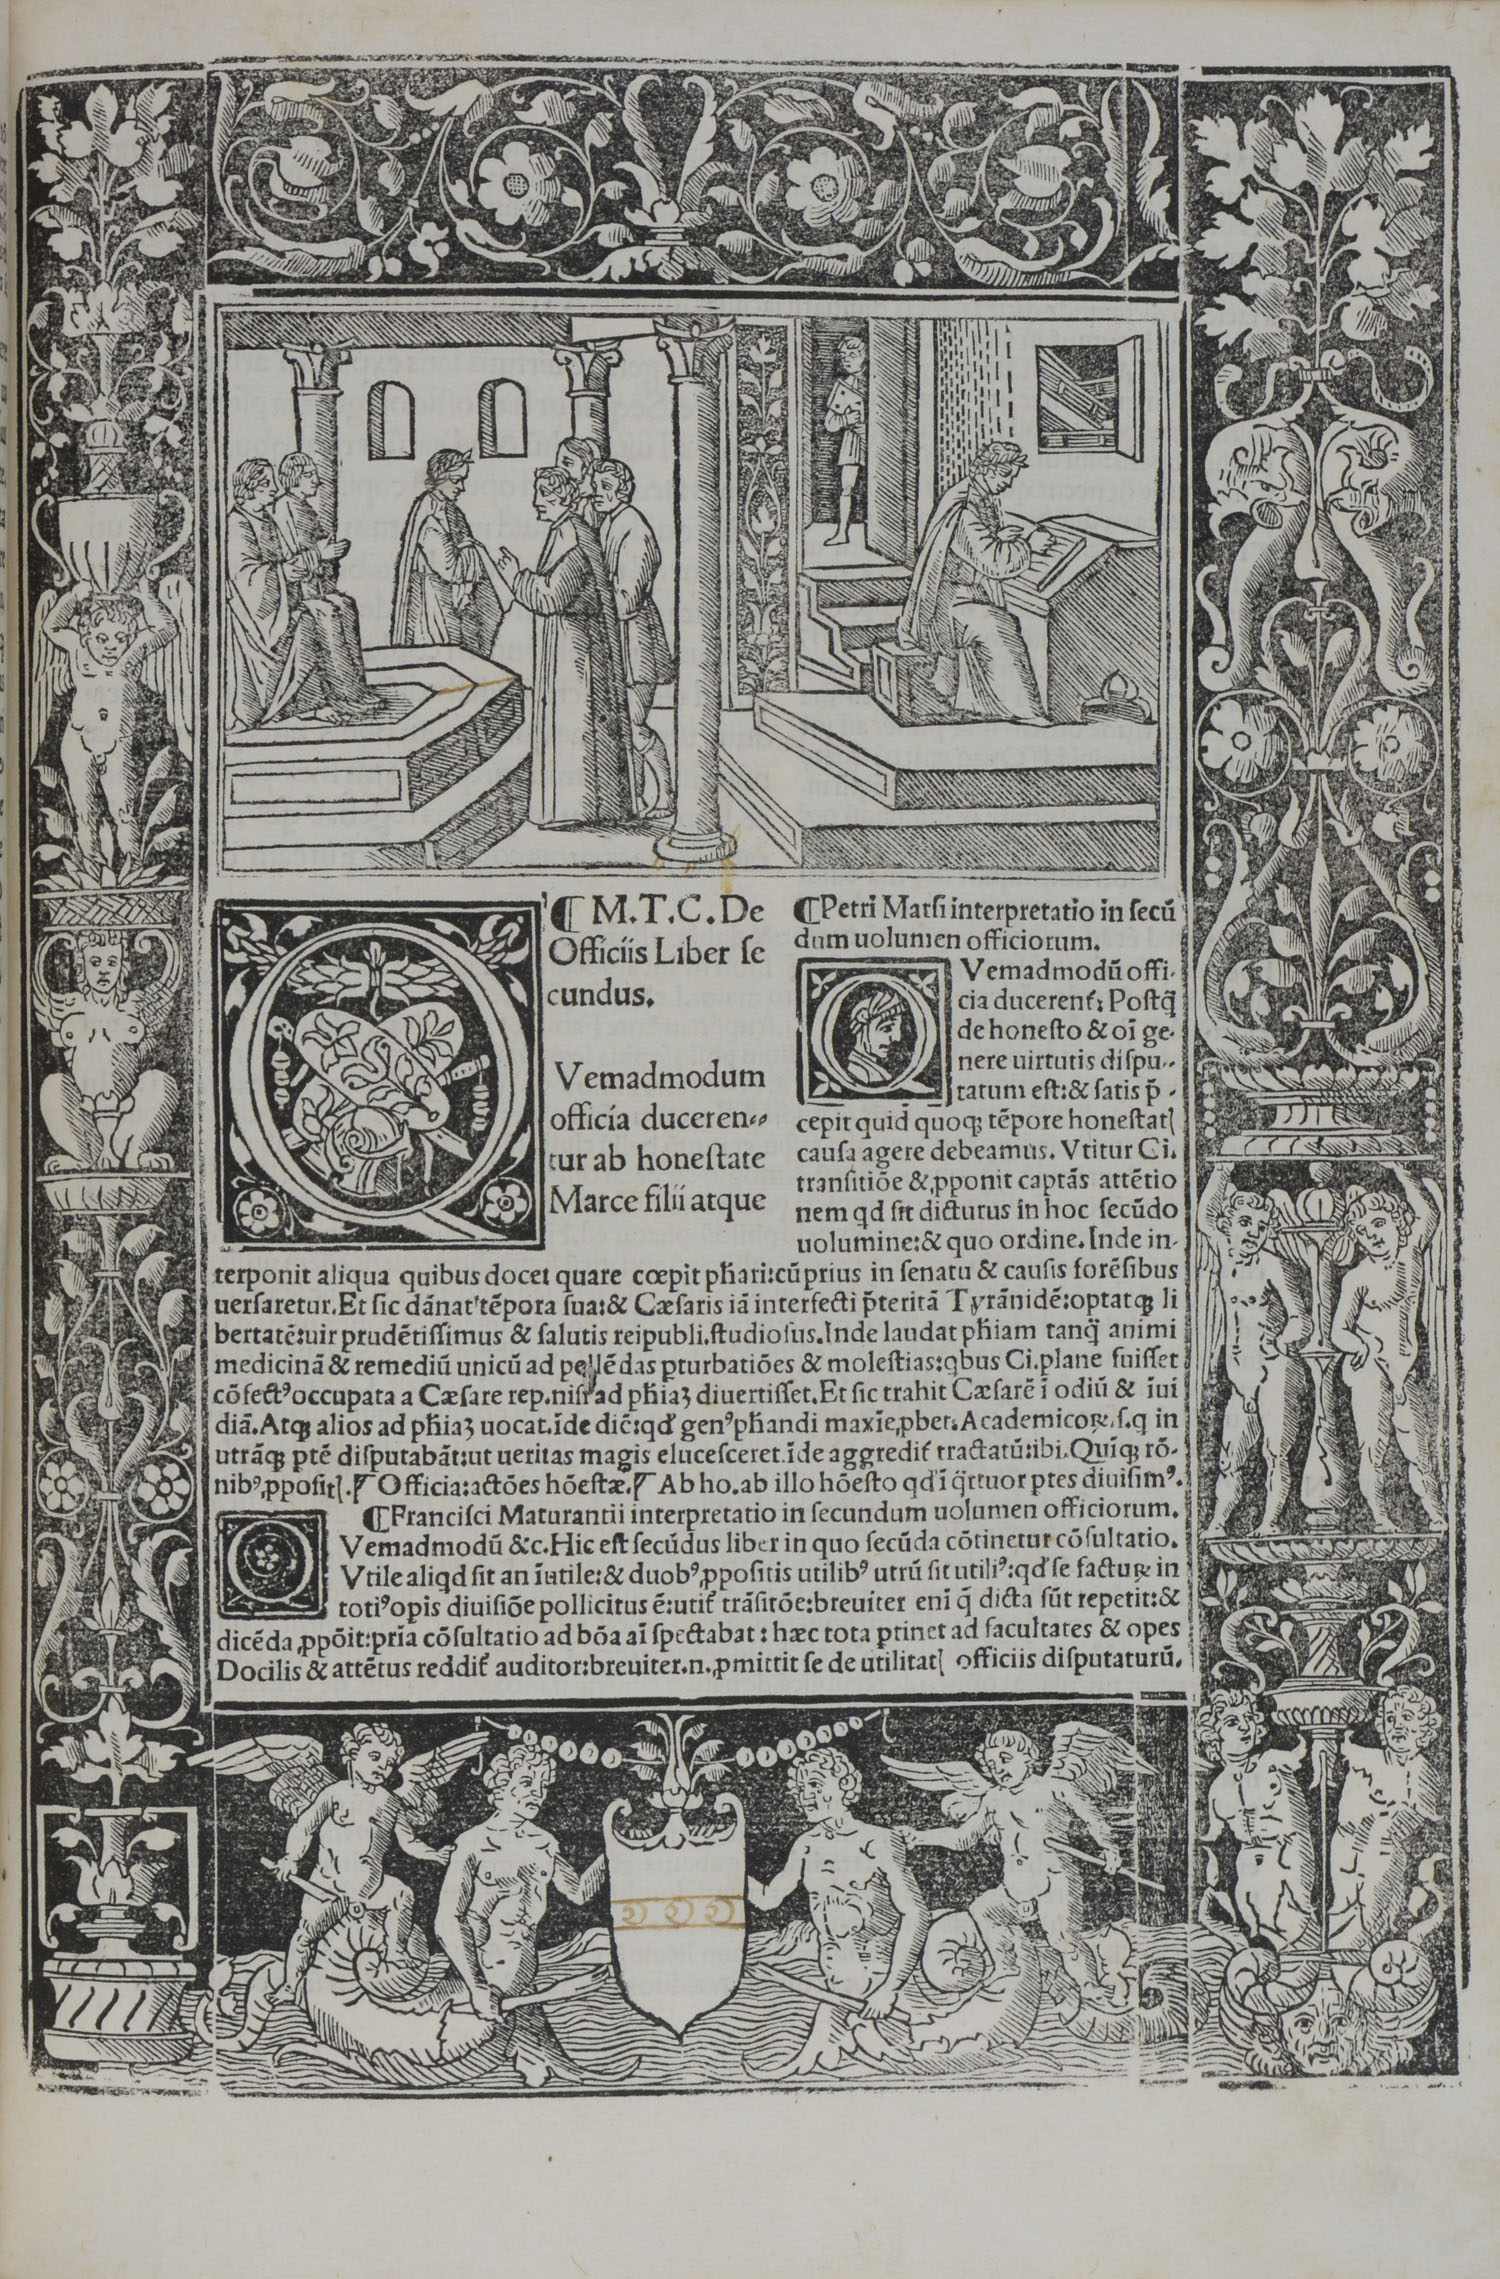 ¶ M.T.C. De
Officiis Liber ſe
cundus.
QVemadmodum
officia duceren⸗
tur ab honeſtate
Marce filii atque
¶Petri Marſi interpretatio in ſecū
dum uolumen officiorum.
QVemadmodū offi-
cia ducerent̃: Poſtq̄
de honeſto & oī ge-
nere uirtutis diſpu-
tatum eſt:& ſatis p̄-
cepit quid quoqꝫ tēpore honeſtatꝭ
cauſa agere debeamus. Vtitur Ci.
tranſitiōe & ꝓponit captās attētio
nem qd ſit dicturus in hoc ſecūdo
uolumine:& quo ordine. Inde in-
terponit aliqua quibus docet quare cœpit ph̄ari:cū prius in ſenatu & cauſis forēſibus
uerſaretur. Et ſic dānat᾽ tēpora ſua:& Cæſaris iā interfecti p̄teritā Tyrānidē:optatqꝫ li
bertatē:uir prudētiſſimus & ſalutis reipubli.ſtudioſus. Inde laudat ph̄iam tanq̄ animi
medicinā & remediū unicū ad pellēdas ꝑturbatiōes & moleſtias:qbus Ci.plane fuiſſet
cōfectꝰ occupata a Cæſare rep.niſi ad ph̄iaꝫ diuertiſſet. Et ſic trahit Cæſarē ī odiū & īui
diā. Atqꝫ alios ad ph̄iaꝫ uocat.īde dic̄:qd genꝰ ph̄andi maxīe ꝓbet. Academicoꝝ.ſ.q in
utrāqꝫ ptē diſputabāt:ut ueritas magis eluceſceret.īde aggredit̃ tractatū:ibi. Quīqꝫ rō-
nibꝰ ꝓpoſitꝭ. ¶ Officia:actōes hōeſtæ. ¶ Ab ho.ab illo hōeſto qd ī q̄ttuor ptes diuiſimꝰ.
¶Franciſci Maturantii interpretatio in ſecundum uolumen officiorum.
QVemadmodū &c. Hic eſt ſecūdus liber in quo ſecūda cōtinetur cōſultatio.
Vtile aliqd ſit an īutile:& duobꝰ ꝓpoſitis utilibꝰ utrū ſit utiliꝰ:qd ſe factuꝝ in
totiꝰ opis diuiſiōe pollicitus ē:utit̃ trāſitōe:breuiter eni q̄ dicta ſūt repetit:&
dicēda ꝓpōit:pria cōſultatio ad bōa aī ſpectabat: hæc tota ptinet ad facultates & opes
Docilis & attētus reddit̃ auditor:breuiter.n.ꝓmittit ſe de utilitatꝭ officiis diſputaturū.